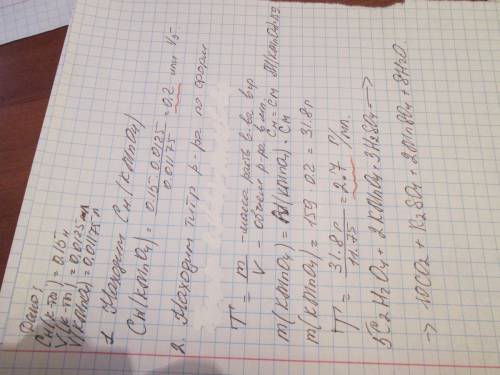 Дано:
Сн(к-ты) = 0.15 н
V(к-ты) = 0,0125 мл
V(KMnO4) = 0.01175 л
1. Находим Сн(KMnO4)
Сн(KMnO4) = 0.15·0.0125 / 0.01175 = 0.2 или
2. Находим титр р-ра по форм
T = m / V
- масса раств в-ва в гр
- объем р-ра в мл
m(KMnO4) = M(KMnO4) · Сн
m(KMnO4) = 159 0.2 = 31.8г
T = 31.8г / 11.75 = 2.7 г/мл.
5C2H2O4 + 2KMnO4 + 3H2SO4 →
→ 10CO2 + K2SO4 + 2MnSO4 + 8H2O